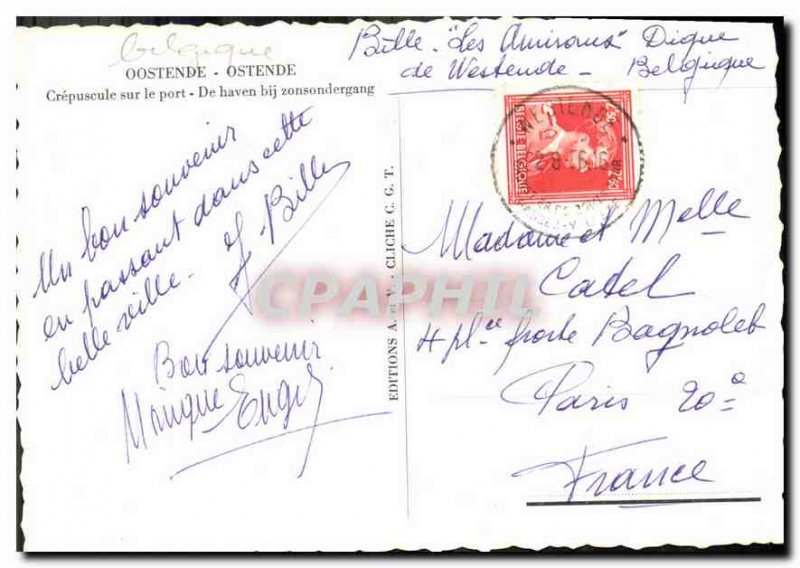 belgique
OOSTENDE - OSTENDE
Crépuscule sur le port - De haven bij zonsondergang
Bille - "Les Amirauts" Digue
de Westende - Belgique
BELGIE BELGIQUE
2F50
Un bon souvenir
en passant dans cette
belle ville - J Bille
Bon souvenir
EDITIONS A. et V. - CLICHE C. G. T.
Madame et Melle
Catel
4 plce porte Bagnolet
Paris 20e
France
CPAPHIL